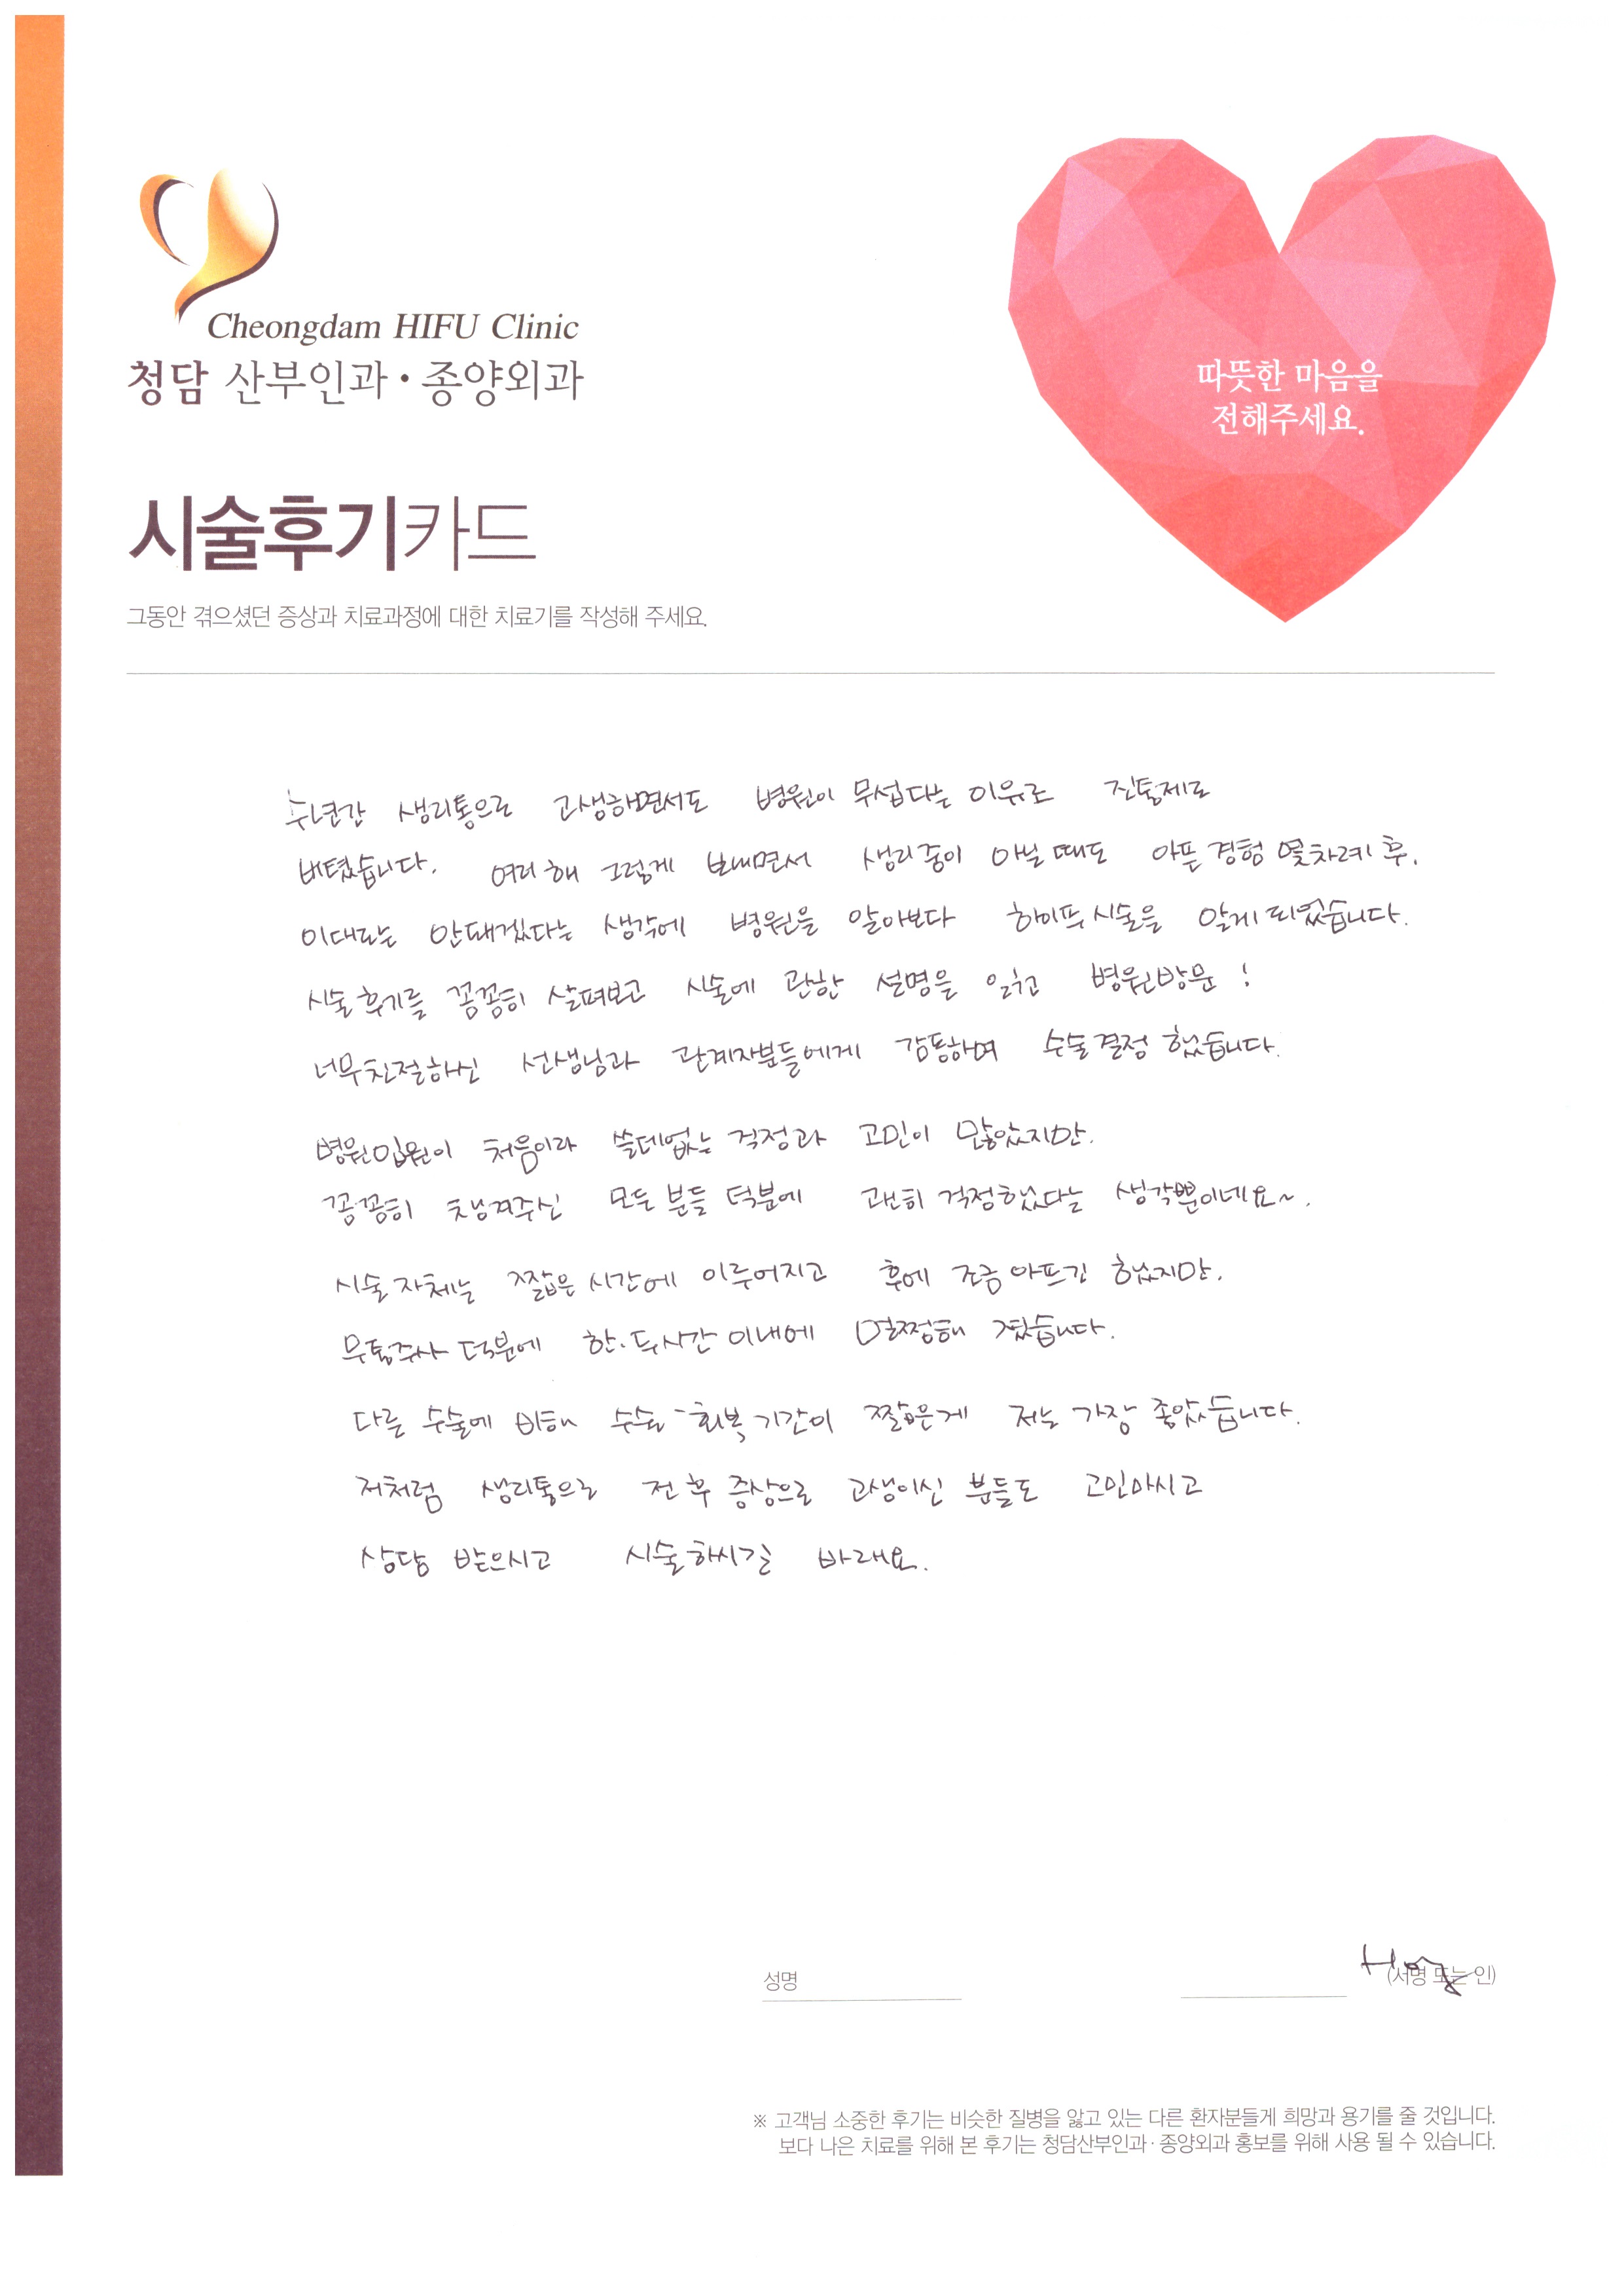 Cheongdam HIFU Clinic
청담 산부인과·종양외과
따뜻한 마음을
전해주세요.
시술후기카드
그동안 겪으셨던 증상과 치료과정에 대한 치료기를 작성해 주세요.
수년간 생리통으로 고생하면서도 병원이 무섭다는 이유로 진통제로
버텼습니다. 여러해 그렇게 보내면서 생리중이 아닐 때도 아픈 경험 몇차례 후.
이대로는 안돼겠다는 생각에 병원을 알아보다 하이푸 시술을 알게 되었습니다.
시술 후기를 꼼꼼히 살펴보고 시술에 관한 설명을 읽고 병원방문!
너무 친절하신 선생님과 관계자분들에게 감동하며 수술결정 했습니다.
병원입원이 처음이라 쓸데없는 걱정과 고민이 많았지만.
꼼꼼히 챙겨주신 모든 분들 덕분에 괜히 걱정했다는 생각뿐이네요~.
시술 자체는 짧은 시간에 이루어지고 후에 조금 아프긴 했지만.
무통주사 덕분에 한.두시간 이내에 멀쩡해 졌습니다.
다른 수술에 비해 수술-회복 기간이 짧은게 저는 가장 좋았습니다.
저처럼 생리통으로 전후 증상으로 고생이신 분들도 고민마시고
상담 받으시고 시술하시길 바래요.
성명 (서명 또는 인)
※ 고객님 소중한 후기는 비슷한 질병을 앓고 있는 다른 환자분들게 희망과 용기를 줄 것입니다.
보다 나은 치료를 위해 본 후기는 청담산부인과·종양외과 홍보를 위해 사용 될 수 있습니다.